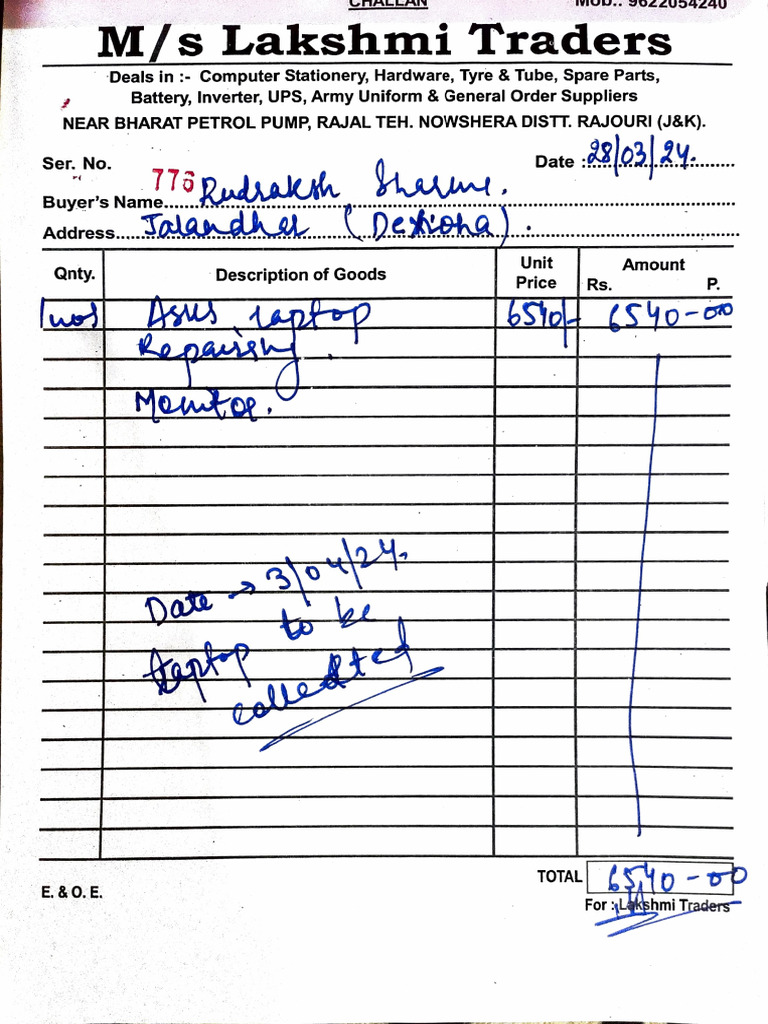 CHALLAN
Mob.: 9622054240
M/s Lakshmi Traders
Deals in :- Computer Stationery, Hardware, Tyre & Tube, Spare Parts,
Battery, Inverter, UPS, Army Uniform & General Order Suppliers
NEAR BHARAT PETROL PUMP, RAJAL TEH. NOWSHERA DISTT. RAJOURI (J&K).
Ser. No. 776
Date : 28/03/24.
Buyer's Name Rudraksh Sharma.
Address Jalandhar
Qnty. Description of Goods Unit Price Amount Rs. P.
1 nos Asus Laptop 6540/- 6540-00
Repairing.
Monitor.
Date → 3/04/24.
Laptop to be
collected
TOTAL 6540-00
E. & O. E.
For : Lakshmi Traders